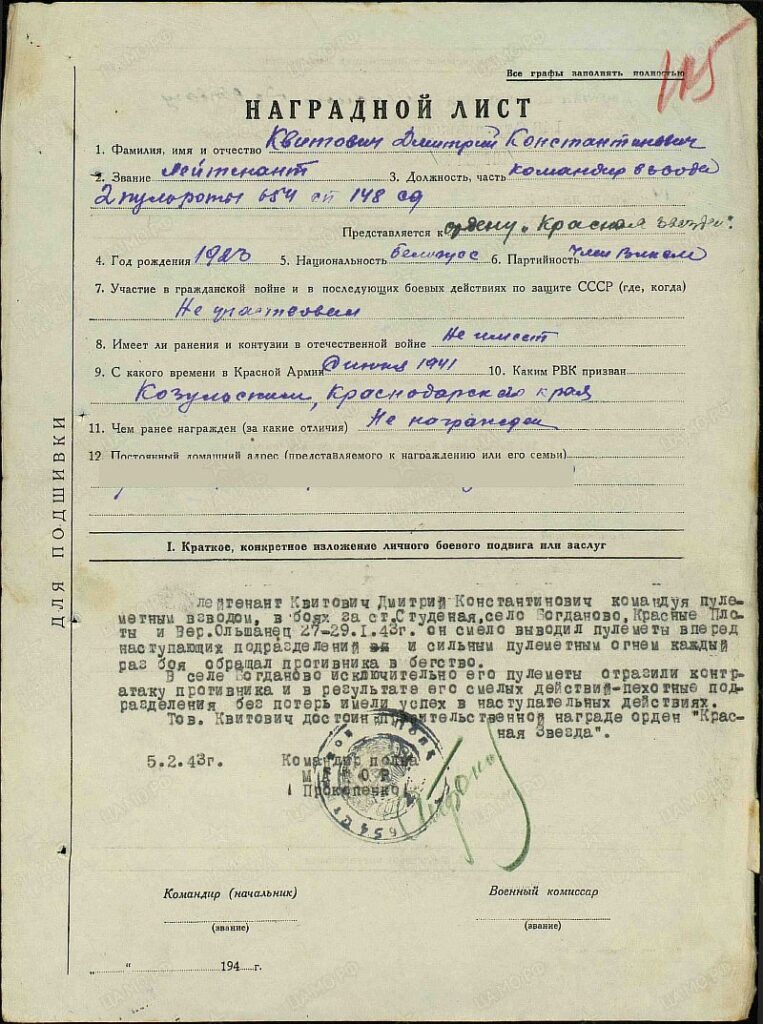 Все графы заполнять полностью
115
НАГРАДНОЙ ЛИСТ
1. Фамилия, имя и отчество Квитович Дмитрий Константинович
2. Звание лейтенант 3. Должность, часть командир взвода
2 пульроты 654 сп 148 сд
Представляется к ордену „Красная звезда".
4. Год рождения 1923 5. Национальность белорус 6. Партийность член ВЛКСМ
7. Участие в гражданской войне и в последующих боевых действиях по защите СССР (где, когда)
Не участвовал
8. Имеет ли ранения и контузии в отечественной войне Не имеет
9. С какого времени в Красной Армии С июня 1941 10. Каким РВК призван
Краснодарского края
11. Чем ранее награжден (за какие отличия) Не награжден
12 Постоянный домашний адрес (представляемого к награждению или его семьи)
ДЛЯ ПОДШИВКИ
I. Краткое, конкретное изложение личного боевого подвига или заслуг
Лейтенант Квитович Дмитрий Константинович командуя пуле-
метным взводом, в боях за ст.Студеная,село Богданово,Красные Пло-
ты и Вер.Ольшанец 27-29.I.43г. он смело выводил пулеметы вперед
наступающих подразделений и сильным пулеметным огнем каждый
раз боя обращал противника в бегство.
В селе Богданово исключительно его пулеметы отразили контр-
атаку противника и в результате его смелых действий-пехотные под-
разделения без потерь имели успех в наступательных действиях.
Тов. Квитович достоин правительственной награде орден "Крас-
ная Звезда".
5.2.43г. Командир полка
МАЙОР
/Прокопенко/
Командир (начальник) Военный комиссар
(звание) (звание)
„ “ 194 г.